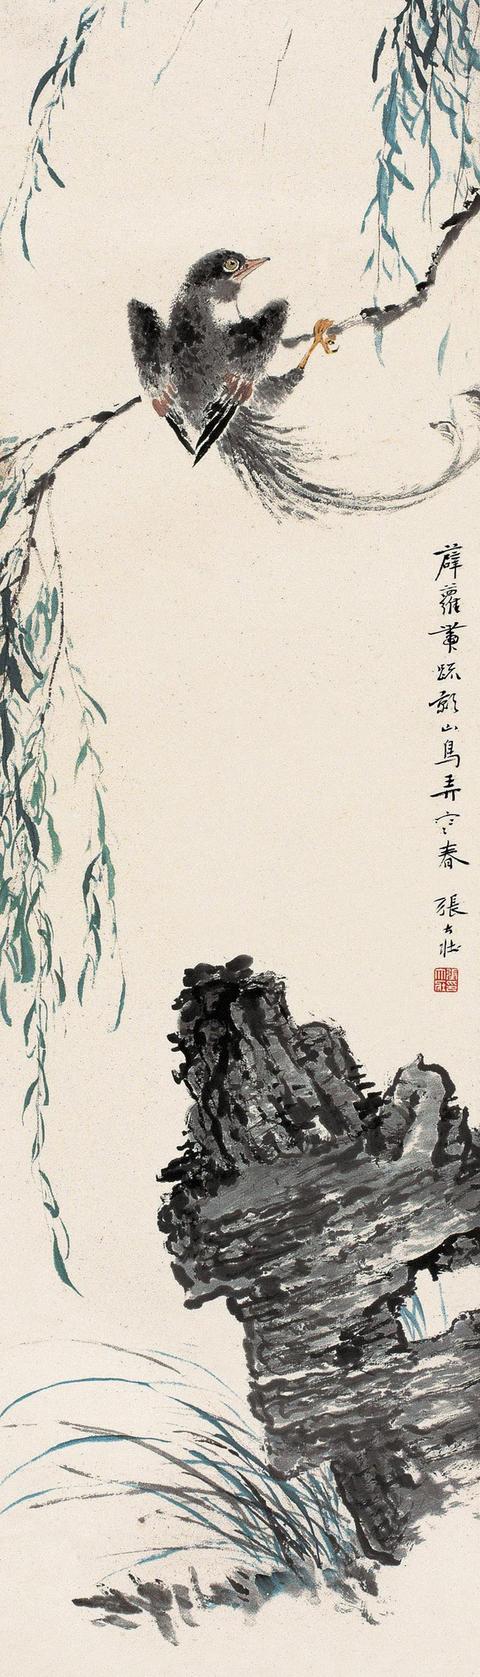 薜蘿黃疏影山鳥弄空春 張大壯